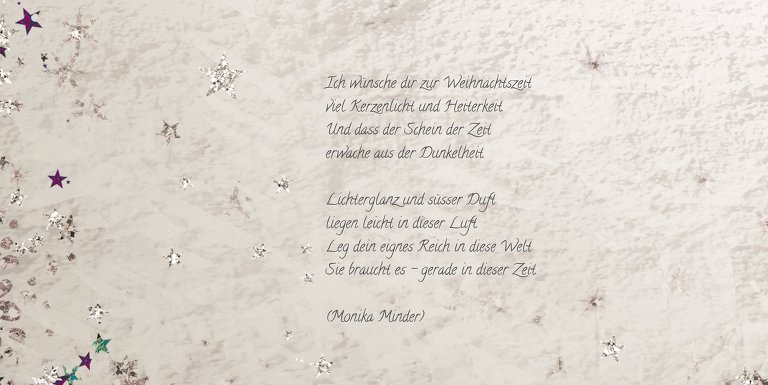 Ich wünsche dir zur Weihnachtszeit
viel Kerzenlicht und Heiterkeit.
Und dass der Schein der Zeit
erwache aus der Dunkelheit.
Lichterglanz und süsser Duft
liegen leicht in dieser Luft.
Leg dein eignes Reich in diese Welt.
Sie braucht es – gerade in dieser Zeit.
(Monika Minder)